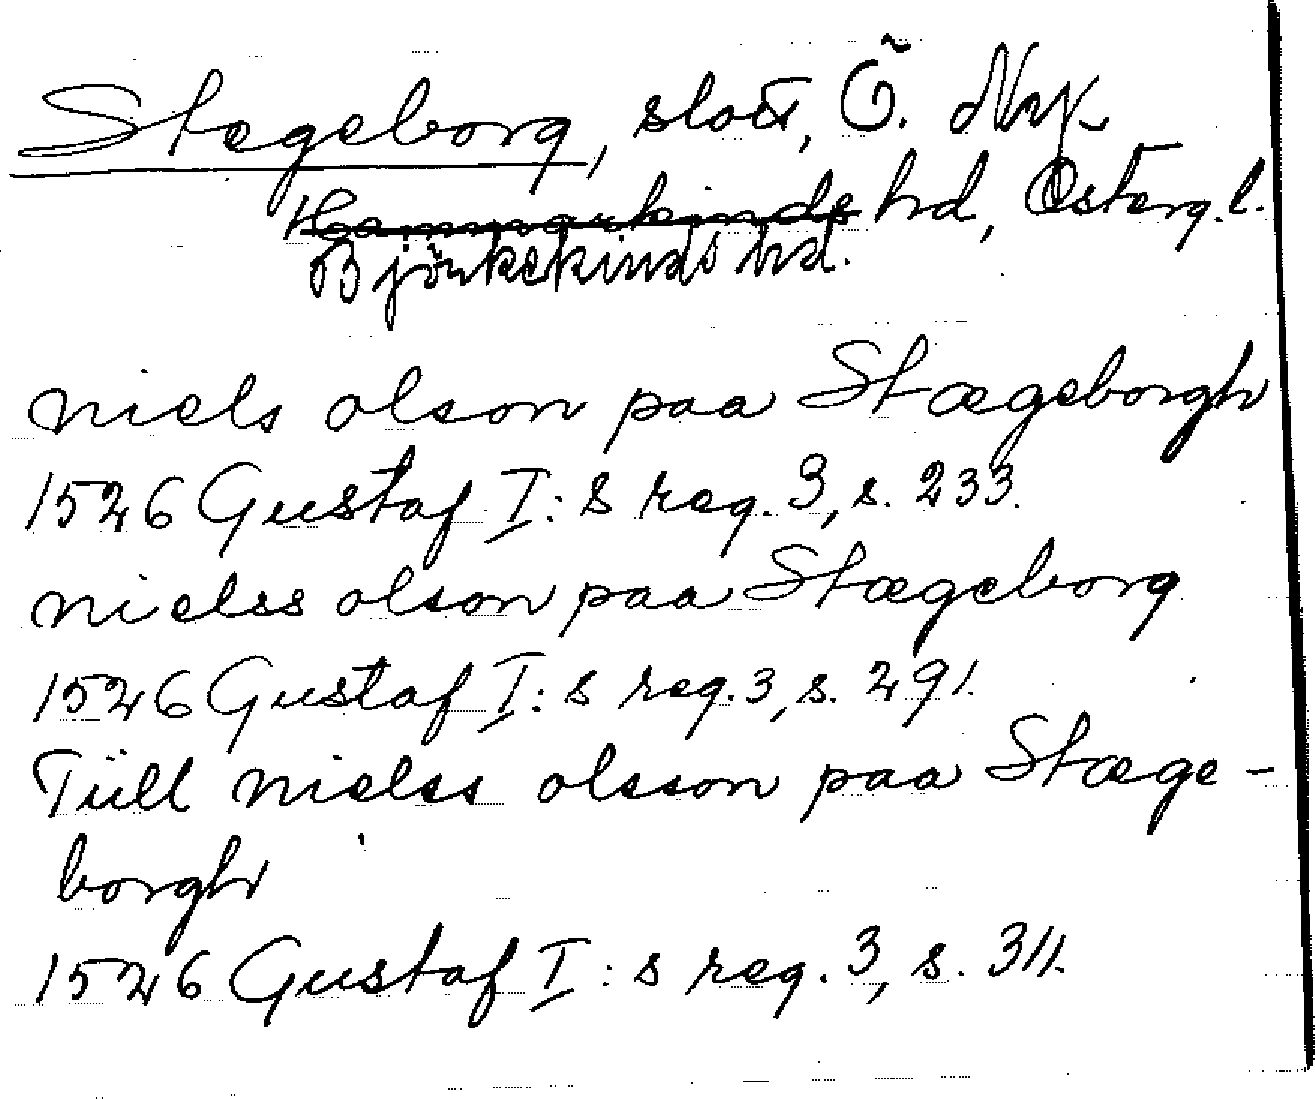 Stegeborg, slott, Ö. Ny-
Hammarkinds hd, Österg. l.
Björkekinds hd.
niels olson paa Stægeborgh
1526 Gustaf I:s reg. 3, s. 233.
nielss olson paa Stægeborg
1526 Gustaf I:s reg. 3, s. 291.
Tüll nielss olsson paa Stæge-
borgh
1526 Gustaf I:s reg. 3, s. 311.